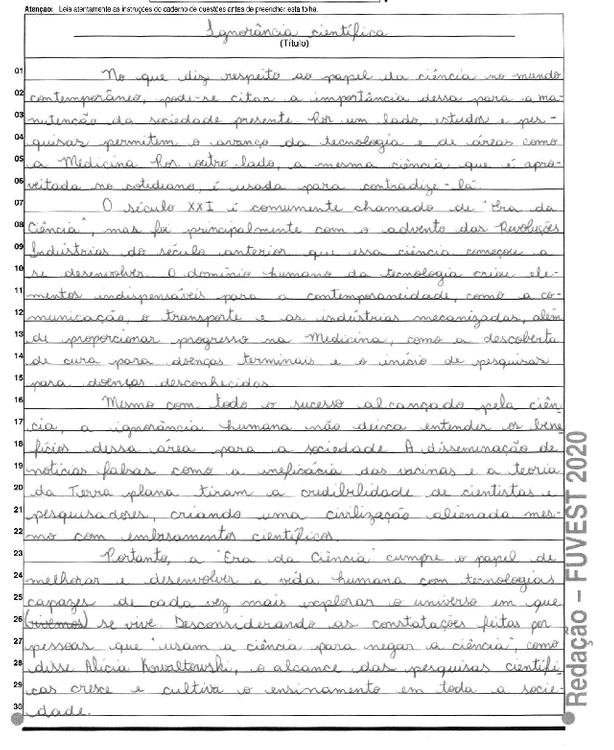 Atenção: Leia atentamente as instruções do caderno de questões antes de preencher esta folha.
Ignorância científica
(Título)
01 No que diz respeito ao papel da ciência no mundo
02 contemporâneo, pode-se citar a importância dessa para a ma-
03 nutenção da sociedade presente. Por um lado, estudos e pes-
04 quisas permitem o avanço da tecnologia e de áreas como
05 a Medicina. Por outro lado, a mesma ciência que é apro-
06 veitada no cotidiano, é usada para contradize-la.
07 O século XXI é comumente chamado de "Era da
08 Ciência", mas foi principalmente com o advento das Revoluções
09 Industrias do século anterior que essa ciência começou a
10 se desenvolver. O domínio humano da tecnologia criou ele-
11 mentos indispensáveis para a contemporaneidade, como a co-
12 municação, o transporte e as indústrias mecanizadas, além
13 de proporcionar progresso na Medicina, como a descoberta
14 de cura para doenças terminais e o início de pesquisas
15 para doenças desconhecidas.
16 Mesmo com todo o sucesso alcançado pela ciên-
17 cia, a ignorância humana não deixa entender os bene
18 fícios dessa área para a sociedade. A disseminação de
19 notícias falsas como a ineficácia das vacinas e a teoria
20 da Terra plana tiram a credibilidade de cientistas e
21 pesquisadores, criando uma civilização alienada mes-
22 mo com embasamentos científicos.
23 Portanto, a "Era da Ciência" cumpre o papel de
24 melhorar e desenvolver a vida humana com tecnologias
25 capazes de cada vez mais explorar o universo em que
26 (vivemos) se vive. Desconsiderando as constatações feitas por
27 pessoas que "usam a ciência para negar a ciência", como
28 disse Alicia Kowaltowski, o alcance das pesquisas científi-
29 cas cresce e cultiva o ensinamento em toda a socie-
30 dade.
Redação – FUVEST 2020